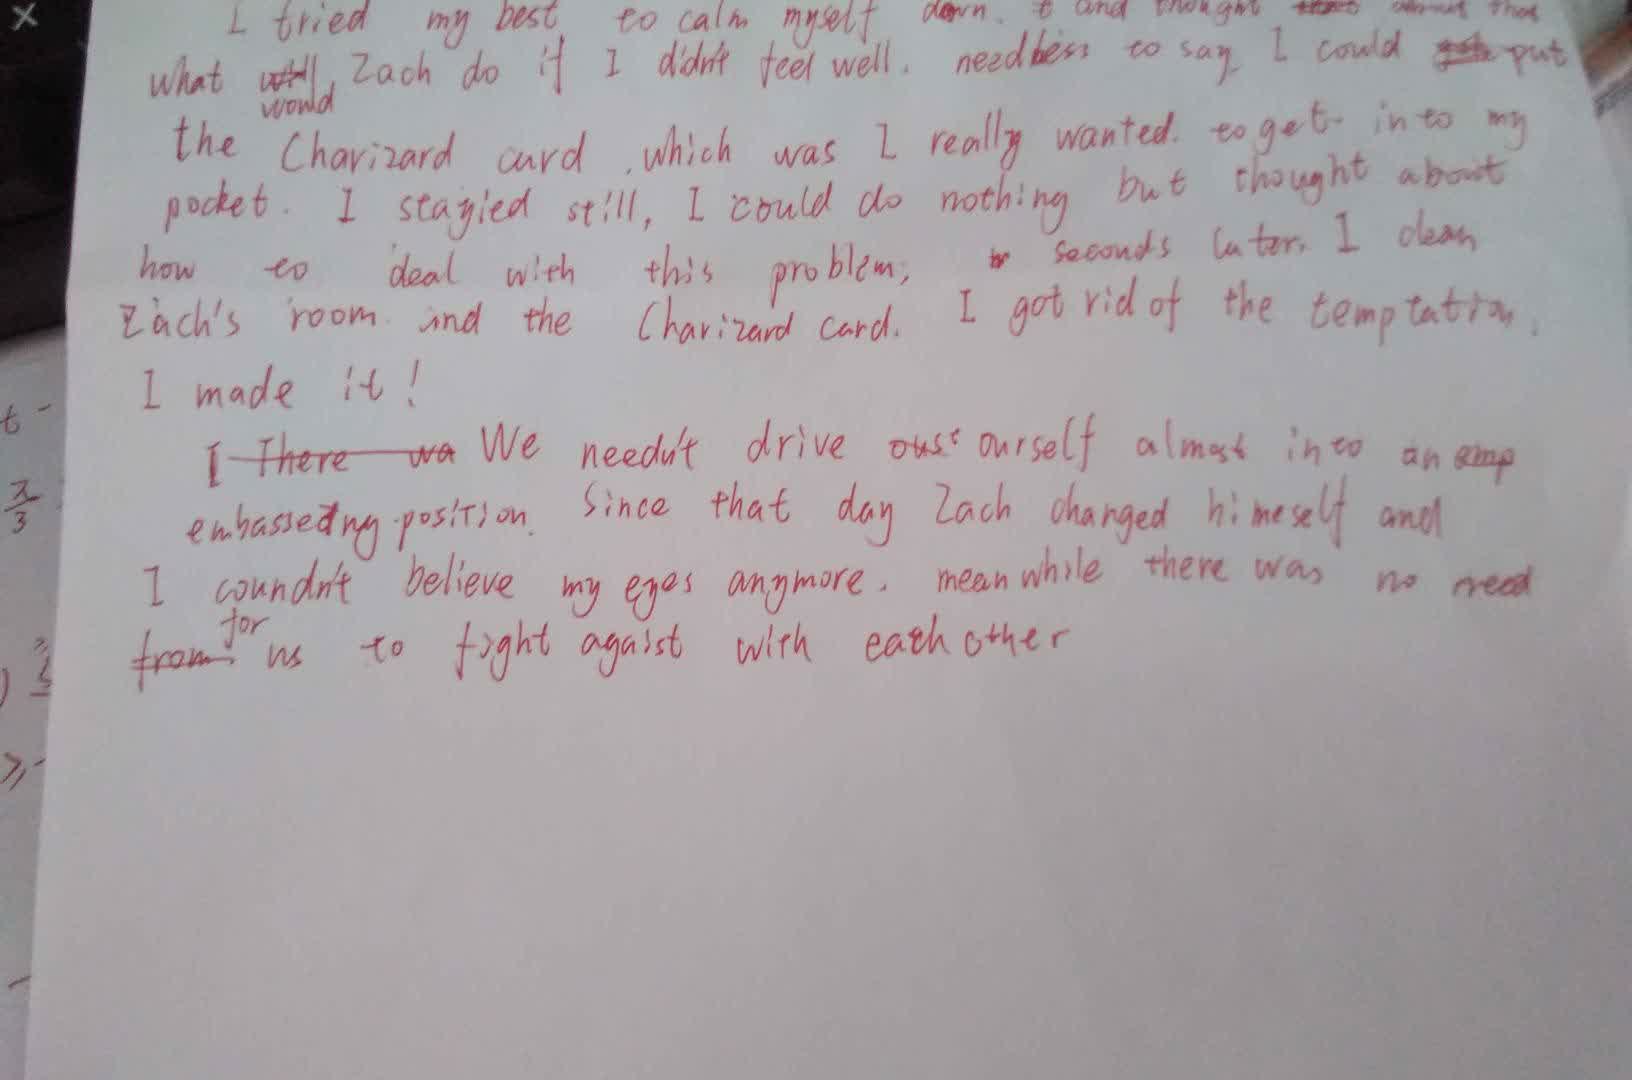 I tried my best to calm myself down. and thought about that
what would Zach do if I didn't feel well. needless to say, I could put
the Charizard card, which was I really wanted. to get into my
pocket. I stayied still, I could do nothing but thought about
how to deal with this problem, seconds later, I clean
Zach's room and the Charizard card. I got rid of the temptation.
I made it!
I There wa We needn't drive ourself almost into an
embassedng position. Since that day Zach changed himeself and
I coundn't believe my eyes anymore. meanwhile there was no need
from for us to fight agaist with each other
t -
π/3